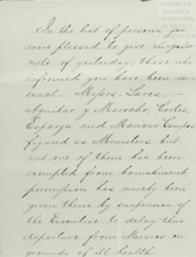 In the list of persons you
were pleased to give in your
note of yesterday, those who
informed you have been in-
exact. Messrs. Lares,
Aguilar y Marocho, Cortes,
Esparza and Mariano Campos
figured as Ministers, but
not one of them has been
exempted from banishment,
permission has merely been
given them by suspension of
the Executive to delay their
departure from Mexico on
grounds of ill health.